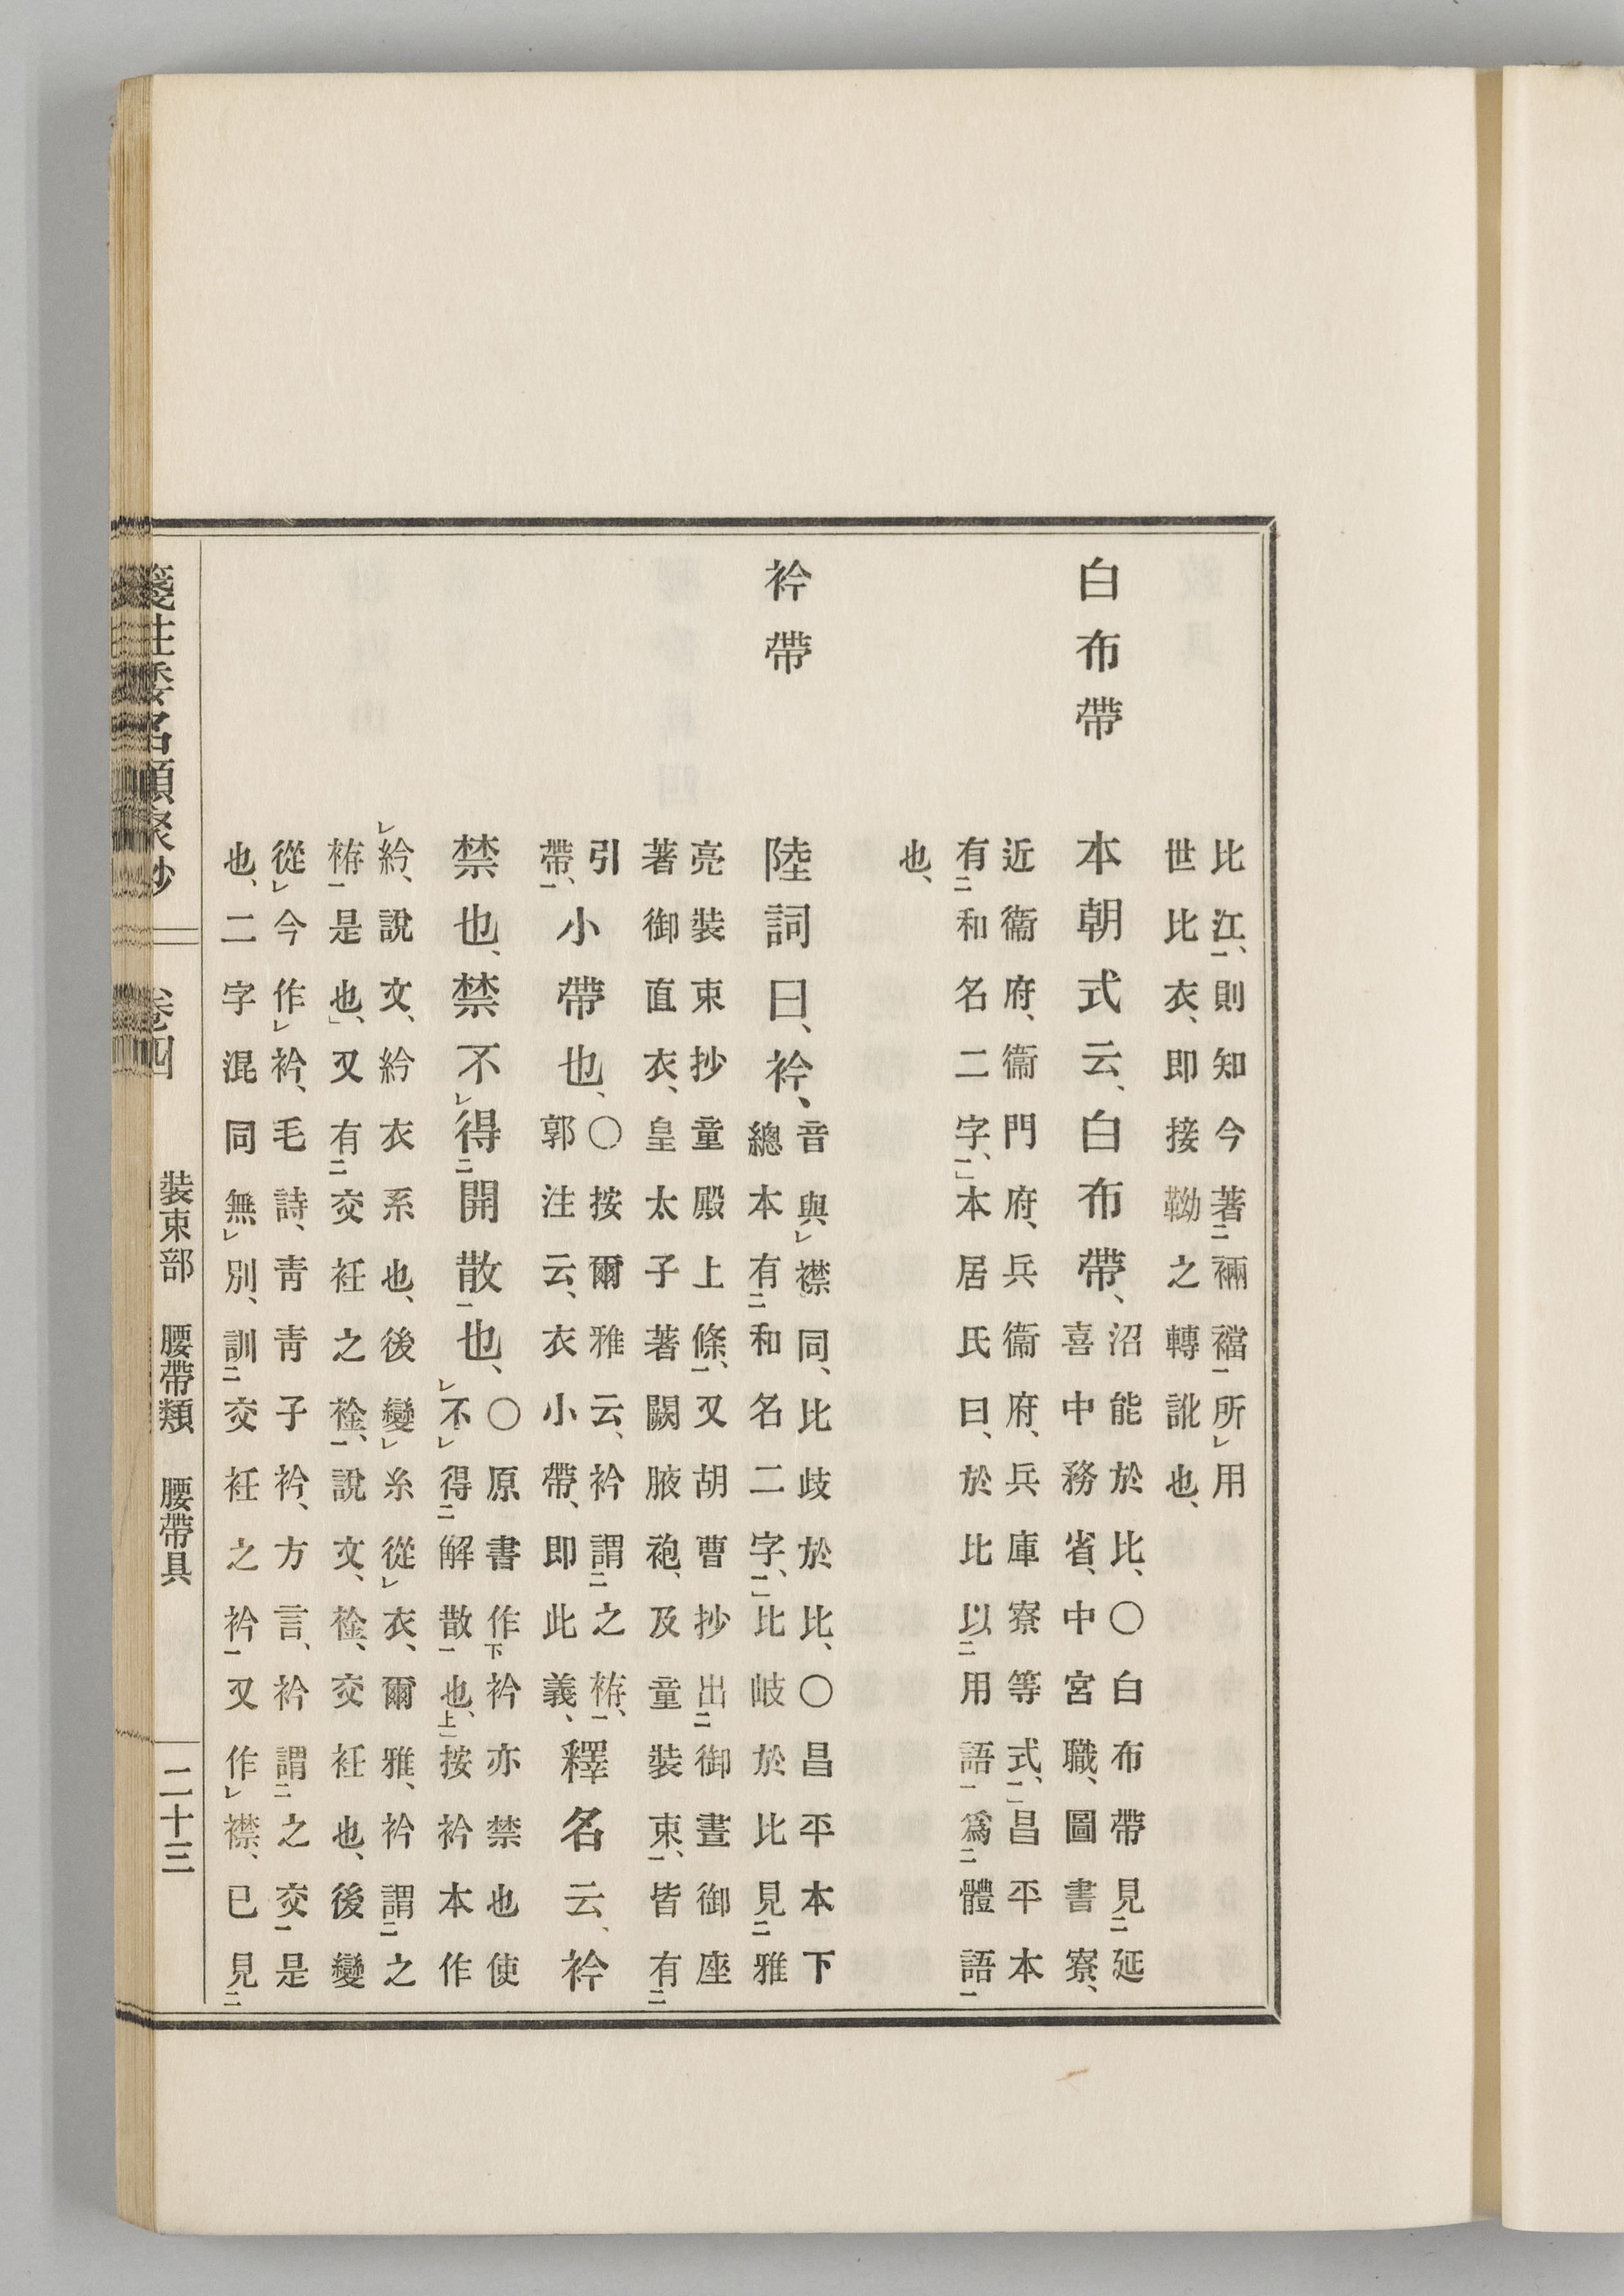 比江、則知今著裲襠所用
世比衣、卽接靿之轉訛也、
白布帶
本朝式云、白布帶、
沼能於比、〇白布帶見延
喜中務省、中宮職、圖書寮、
近衞府、衞門府、兵衞府、兵庫寮等式、昌平本
有和名二字、本居氏曰、於比以用語爲體語
也、
衿帶
陸詞曰、衿、
音與襟同、比歧於比、〇昌平本下
總本有和名二字、比岐於比見雅
亮裝束抄童殿上條、又胡曹抄出御晝御座
著御直衣、皇太子著闕腋袍、及童裝束、皆有
引
帶、
小帶也、
〇按爾雅云、衿謂之袸、
郭注云、衣小帶、卽此義、
釋名云、衿
禁也、禁不得開散也、
〇原書作衿亦禁也使
不得解散也、按衿本作
紟、說文、紟衣系也、後變糸從衣、爾雅、衿謂之
袸是也、又有交衽之䘳、說文、䘳、交衽也、後變
從今作衿、毛詩、靑靑子衿、方言、衿謂之交是
也、二字混同無別、訓交衽之衿又作襟、已見
箋注倭名類聚抄 卷四 裝束部 腰帶類 腰帶具 二十三